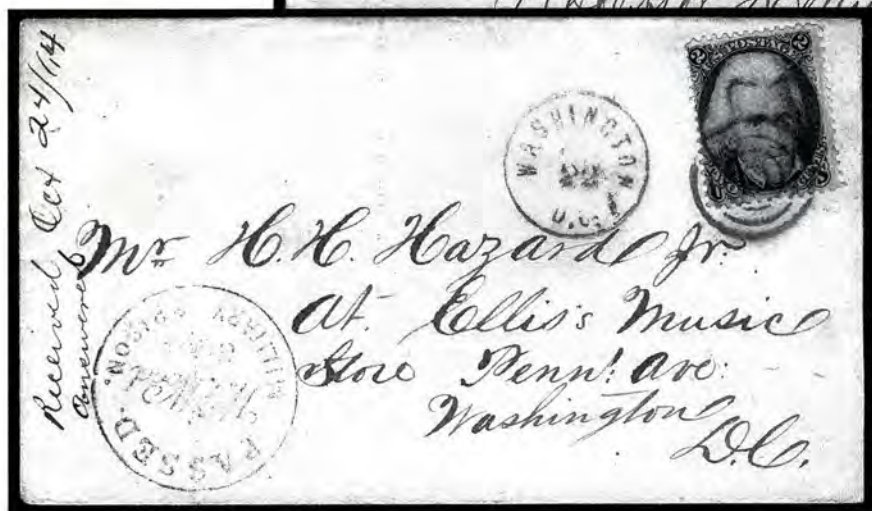 Received Oct 24/64
Answered
WASHINGTON
22
D.C.
2 2
U.S. POSTAGE
Mr H. H. Hazard Jr.
At. Ellis's Music
Store Penn! Ave:
Washington
D.C.
MILITARY PRISON.
PASSED.